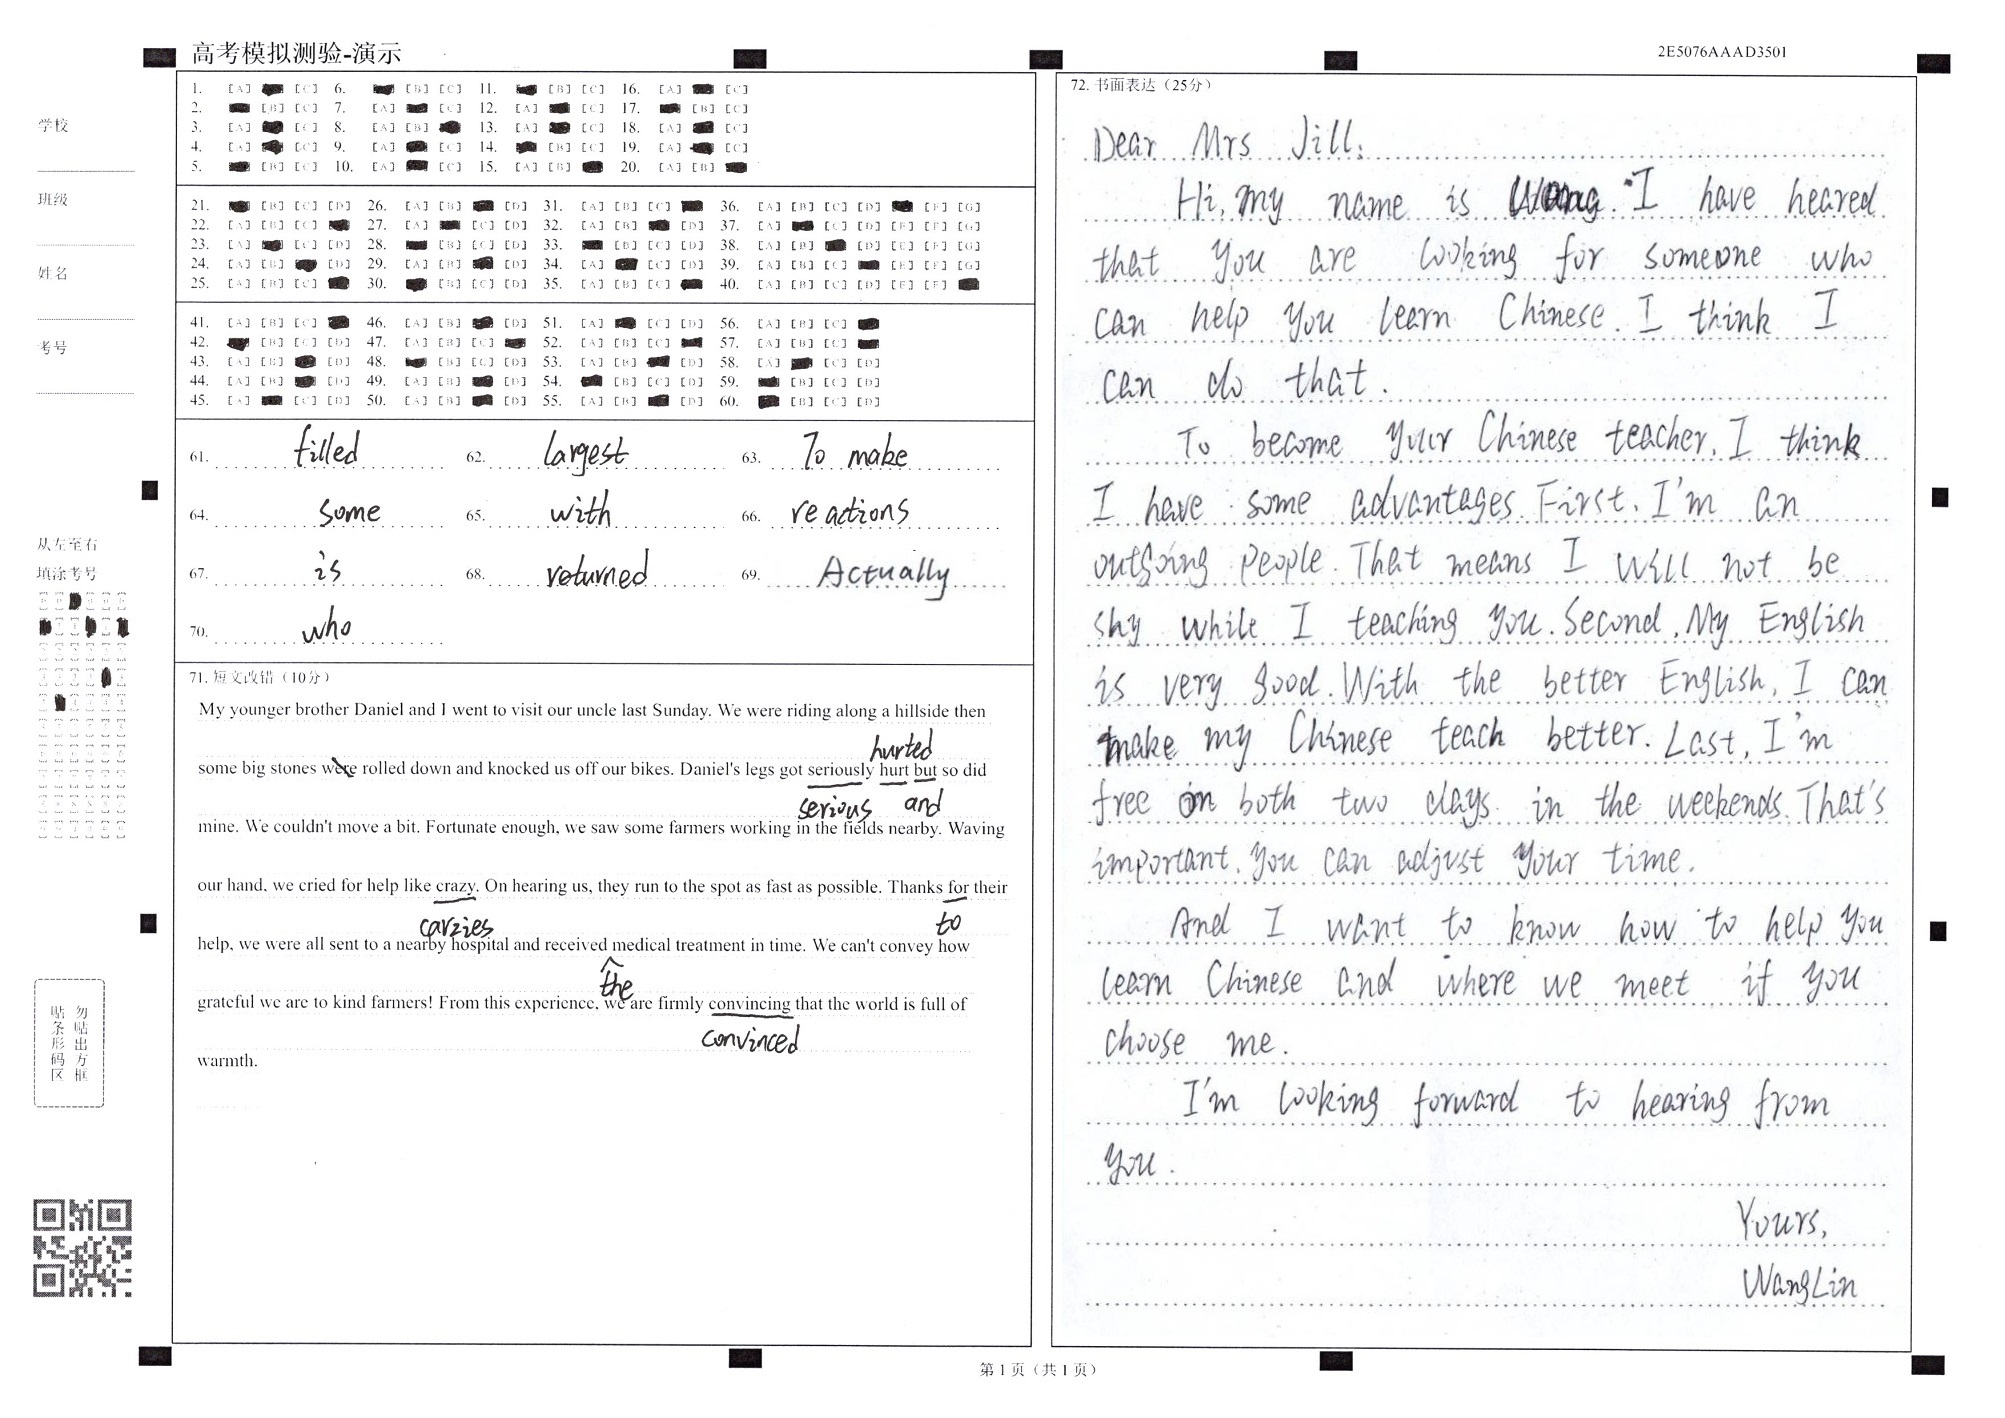 高考模拟测验-演示
2E5076AAAD3501
学校
班级
姓名
考号
从左至右
填涂考号
勿贴出方框
贴条形码区
1. [A] [C] 6. [B] [C] 11. [B] [C] 16. [A] [C]
2. [B] [C] 7. [A] [C] 12. [A] [C] 17. [B] [C]
3. [A] [C] 8. [A] [B] 13. [A] [C] 18. [A] [C]
4. [A] [C] 9. [A] [C] 14. [B] [C] 19. [A] [C]
5. [B] [C] 10. [A] [C] 15. [A] [B] 20. [A] [B]
21. [B] [C] [D] 26. [A] [B] [D] 31. [A] [B] [C] 36. [A] [B] [C] [D] [F] [G]
22. [A] [B] [C] 27. [A] [C] [D] 32. [A] [B] [D] 37. [A] [C] [D] [E] [F] [G]
23. [A] [C] [D] 28. [B] [C] [D] 33. [B] [C] [D] 38. [A] [B] [D] [E] [F] [G]
24. [A] [B] [D] 29. [A] [B] [D] 34. [A] [C] [D] 39. [A] [B] [C] [E] [F] [G]
25. [A] [B] [C] 30. [B] [C] [D] 35. [A] [B] [C] 40. [A] [B] [C] [D] [E] [F]
41. [A] [B] [C] 46. [A] [B] [D] 51. [A] [C] [D] 56. [A] [B] [C]
42. [B] [C] [D] 47. [A] [B] [C] 52. [A] [B] [C] 57. [A] [B] [C]
43. [A] [B] [D] 48. [B] [C] [D] 53. [A] [B] [D] 58. [A] [C] [D]
44. [A] [B] [D] 49. [A] [B] [D] 54. [B] [C] [D] 59. [B] [C] [D]
45. [A] [C] [D] 50. [A] [B] [D] 55. [A] [B] [D] 60. [B] [C] [D]
61. filled 62. largest 63. To make
64. some 65. with 66. reactions
67. is 68. returned 69. Actually
70. who
71. 短文改错（10分）
My younger brother Daniel and I went to visit our uncle last Sunday. We were riding along a hillside then
hurted
some big stones were rolled down and knocked us off our bikes. Daniel's legs got seriously hurt but so did
serious and
mine. We couldn't move a bit. Fortunate enough, we saw some farmers working in the fields nearby. Waving
our hand, we cried for help like crazy. On hearing us, they run to the spot as fast as possible. Thanks for their
carzies to
help, we were all sent to a nearby hospital and received medical treatment in time. We can't convey how
the
grateful we are to kind farmers! From this experience, we are firmly convincing that the world is full of
convinced
warmth.
72. 书面表达（25分）
Dear Mrs Jill:
Hi, my name is Wang. I have heared
that you are looking for someone who
can help you learn Chinese. I think I
can do that.
To become your Chinese teacher, I think
I have some advantages. First, I'm an
outgoing people. That means I will not be
shy while I teaching you. Second, My English
is very good. With the better English, I can
make my Chinese teach better. Last, I'm
free on both two days in the weekends. That's
important. You can adjust your time.
And I want to know how to help you
learn Chinese and where we meet if you
choose me.
I'm looking forward to hearing from
you.
Yours,
WangLin
第1页（共1页）